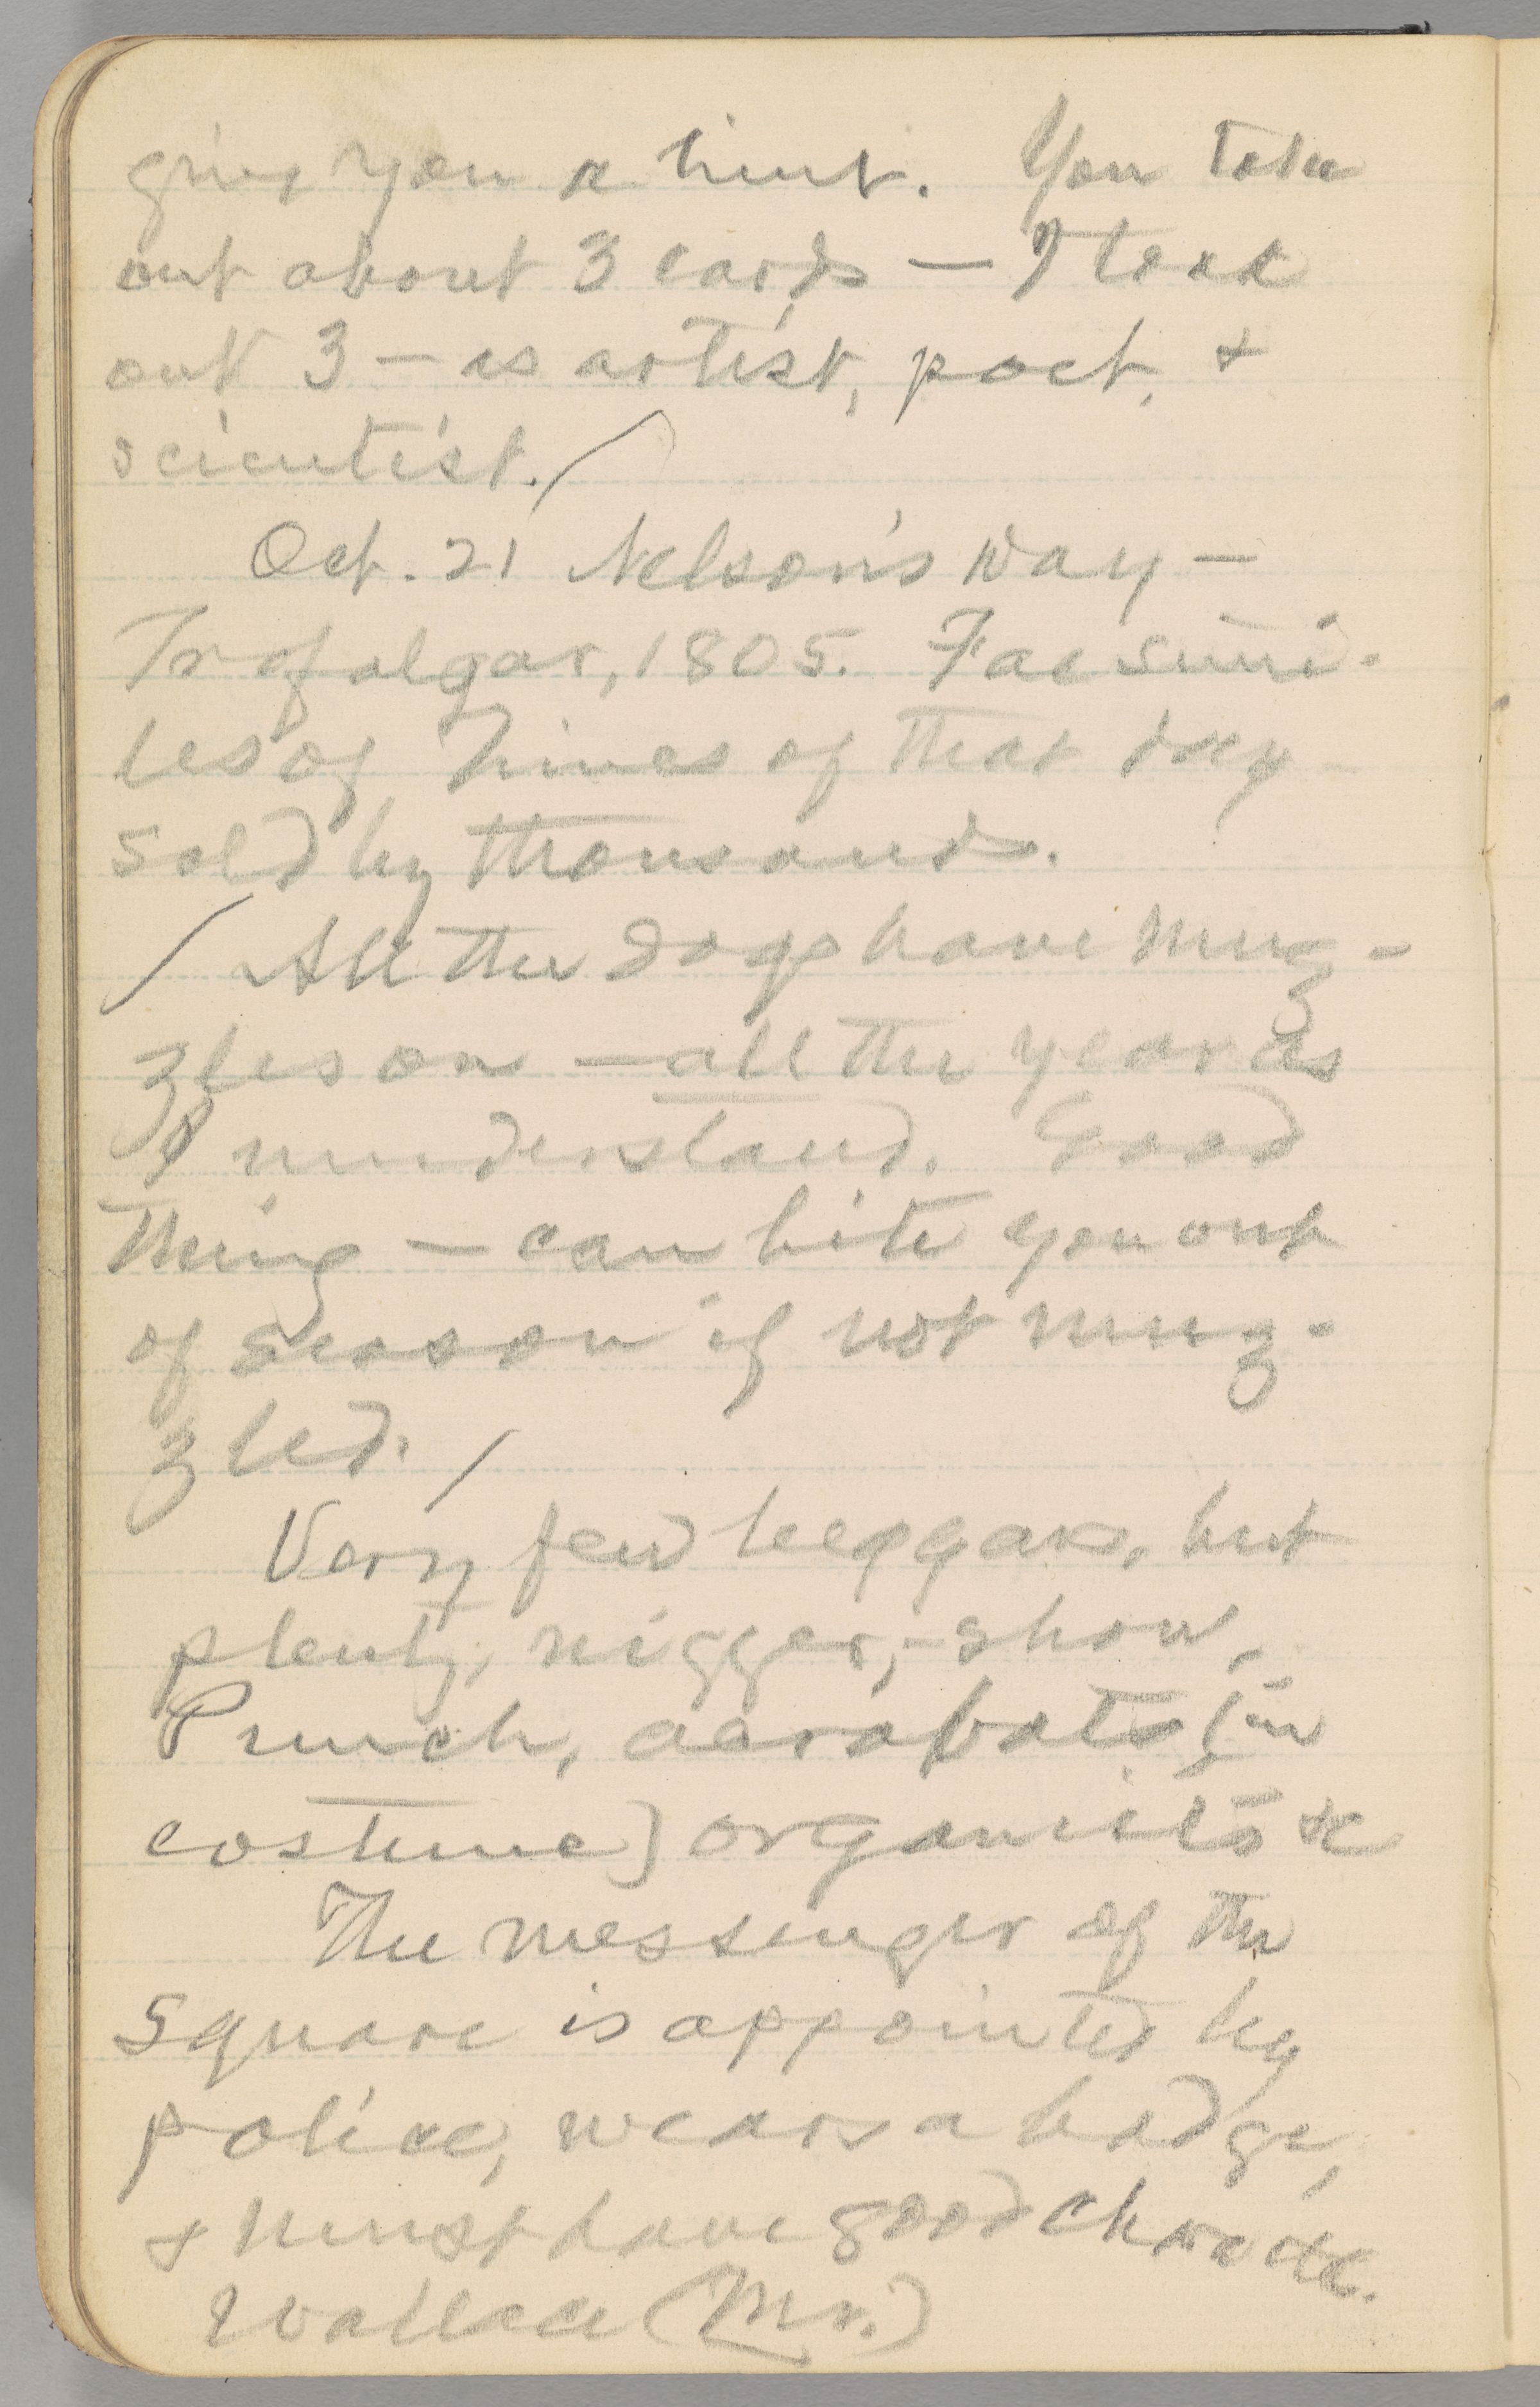 give you a hint. You take
out about 3 cards — I took
out 3 — as artist, poet, &
scientist. /
Oct. 21 Nelson's Day —
Trafalgar, 1805. Facsimi-
les of Times of that day
sold by thousands.
/ All the dogs have muz-
zles on — all the year as
I understand. Good
thing — can bite you out
of season if not muz-
zled. /
Very few beggars, but
plenty, nigger,-show,
Punch, acrobats (in
costume) organists &c
The messenger of the
Square is appointed by
police, wears a badge,
& must have good
Wallace (Mr.)